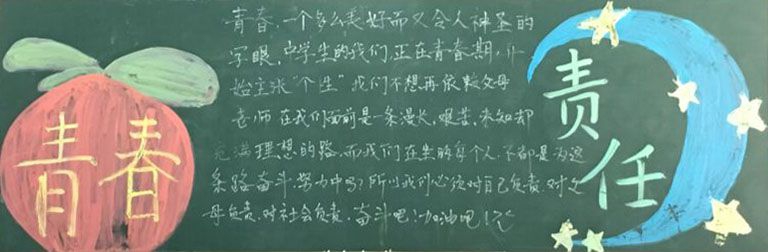 青春
青春,一个多么美好而又令人神圣的
字眼,中学生的我们,正在青春期,开
始主张"个性"我们不想再依赖父母
老师 在我们面前是一条漫长,艰苦,未知却
充满理想的路,而我们在坐的每个人,不都是为这
条路奋斗,努力中吗?所以我们必须对自己负责,对父
母负责,对社会负责,奋斗吧!加油吧!
责任